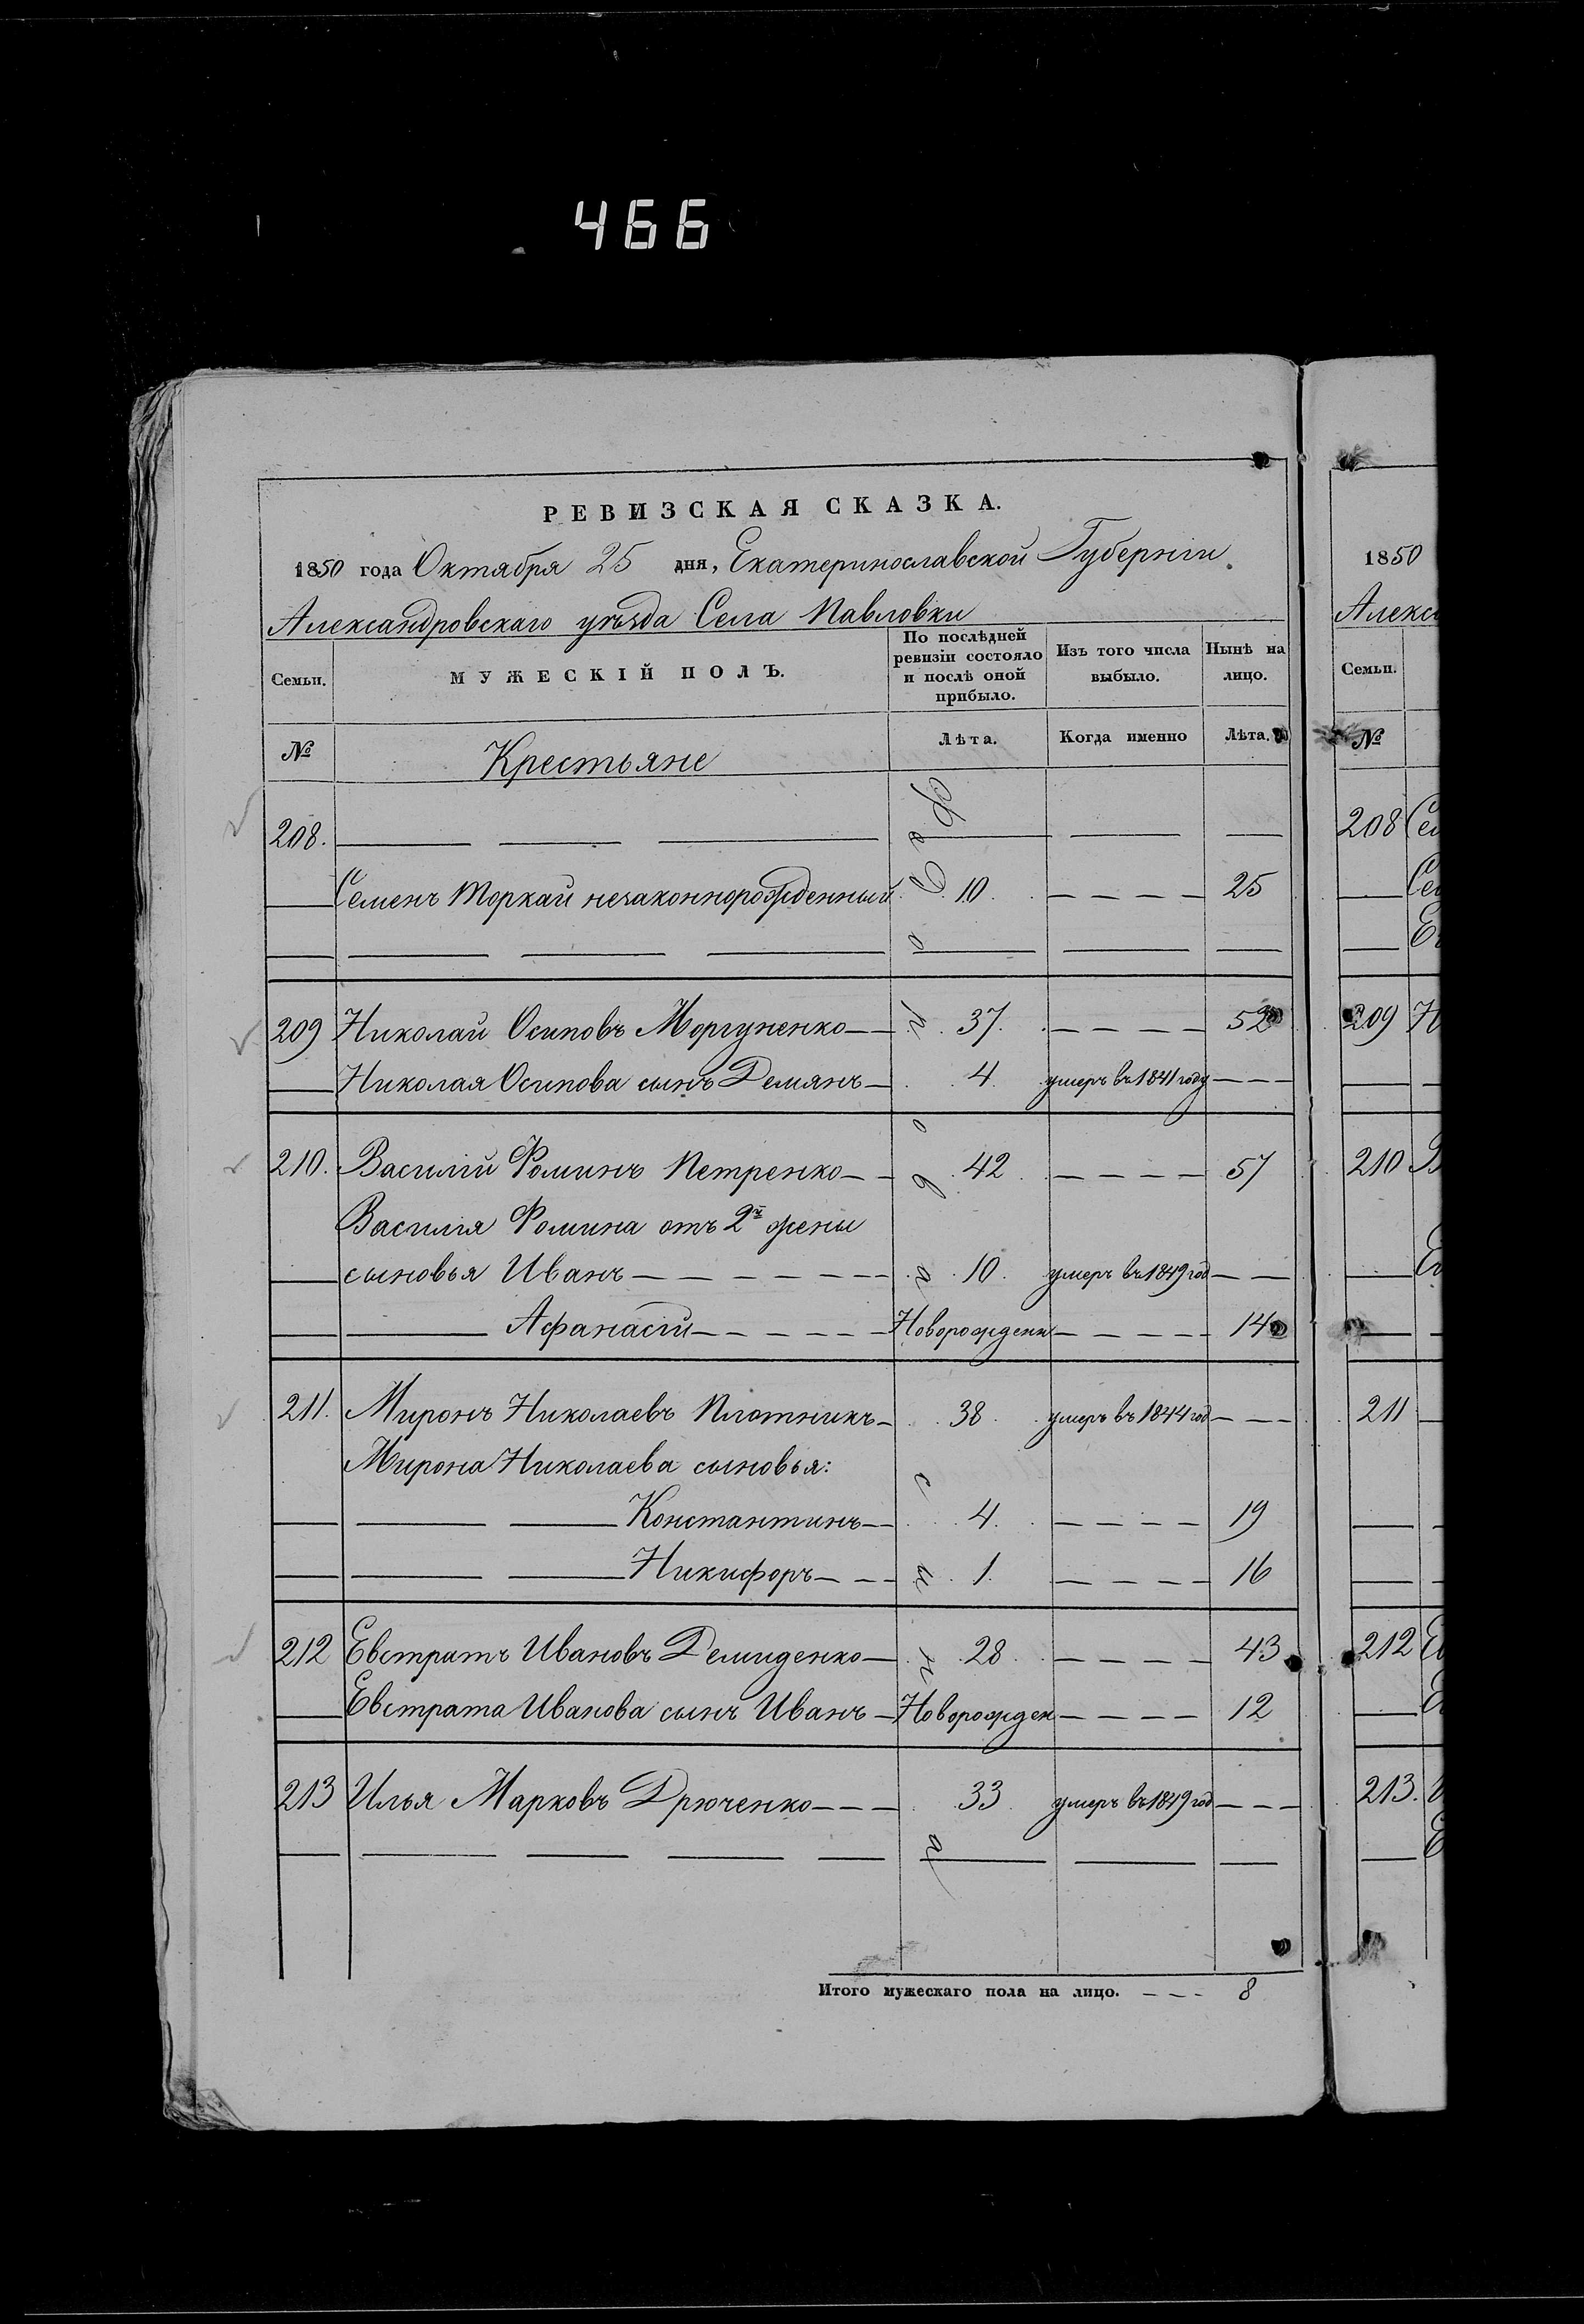 466
РЕВИЗСКАЯ СКАЗКА.
1850 года Октября 25 дня, Екатеринославской Губернiи.
Александровскаго уѣзда Села Павловки
Семьи. МУЖЕСКIЙ ПОЛЪ. По послѣдней ревизiи состояло и послѣ оной прибыло. Изъ того числа выбыло. Нынѣ на лицо.
№ Крестьяне Лѣта. Когда именно Лѣта.
208.
Семенъ Торкай незаконнорожденный 10 25
209 Николай Осиповъ Моргуненко 37. 52
Николая Осипова сынъ Демянъ 4. умеръ въ 1841 году
210. Василiй Фоминъ Петренко 42 57
Василия Фомина отъ 2й жены
сыновья Иванъ 10. умеръ въ 1849 год
Афанасiй Новорожденн 14
211. Миронъ Николаевъ Плотникъ 38. умеръ въ 1844 год
Мирона Николаева сыновья:
Константинъ 4. 19
Никифоръ 1. 16
212 Евстратъ Ивановъ Демиденко 28. 43
Евстрата Иванова сынъ Иванъ Новорожден 12
213 Илья Марковъ Дрюченко 33 умеръ въ 1849 год
Итого мужескаго пола на лицо. 8
1850
Алекса
Семьи.
№
208
209
210
211
212
213.